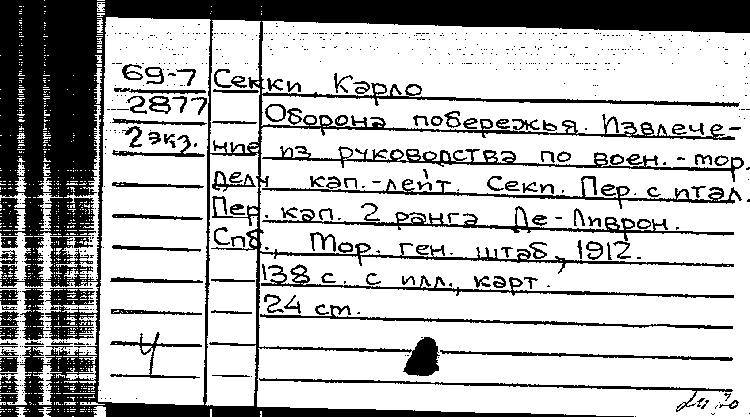 69-7 Секки, Карло
2877 Оборона побережья. Извлече-
2 экз. ние из руководства по воен.-мор.
делу кап.-лейт. Секи. Пер. с итал.
Пер. кап. 2 ранга Де-Ливрон.
Спб., Мор. ген. штаб, 1912.
138 с. с илл., карт.
24 см.
Ч